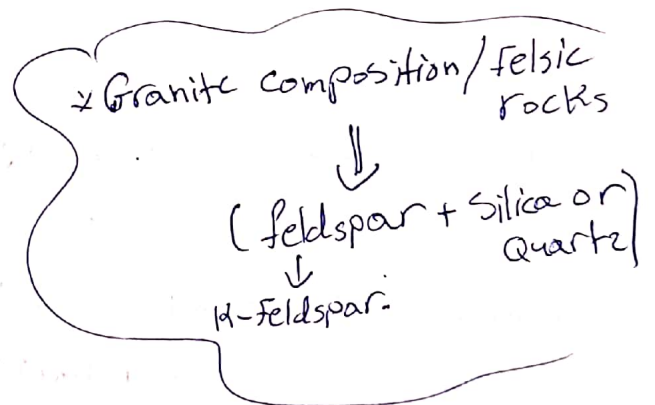 * Granite composition / felsic
rocks
⇓
(feldspar + Silica or
Quartz)
↓
K-Feldspar.